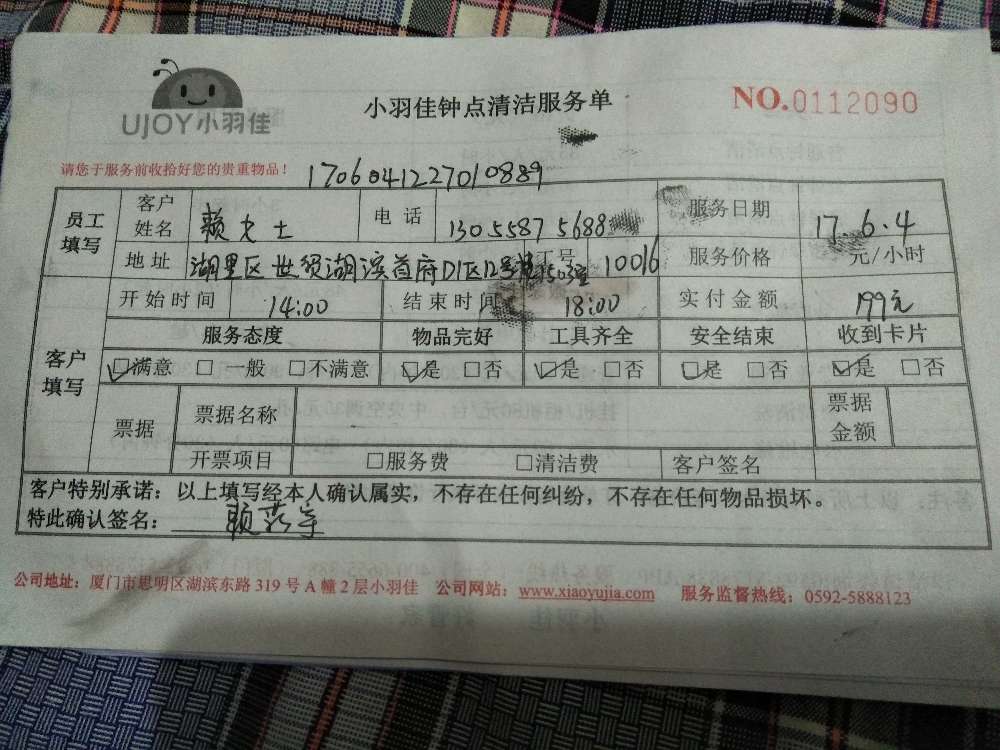 UJOY小羽佳
小羽佳钟点清洁服务单
NO.0112090
请您于服务前收拾好您的贵重物品！
1706041227010889
员工填写 客户姓名 赖女士 电话 13055875688 服务日期 17.6.4
地址 湖里区世贸湖滨首府D1区12号 工号 10016 服务价格 元/小时
开始时间 14:00 结束时间 18:00 实付金额 199元
客户填写 服务态度 物品完好 工具齐全 安全结束 收到卡片
☑满意 □一般 □不满意 ☑是 □否 ☑是 □否 ☑是 □否 ☑是 □否
票据 票据名称 票据金额
开票项目 □服务费 □清洁费 客户签名
客户特别承诺：以上填写经本人确认属实，不存在任何纠纷，不存在任何物品损坏。
特此确认签名： 赖
公司地址：厦门市思明区湖滨东路319号A幢2层小羽佳 公司网站：www.xiaoyujia.com 服务监督热线：0592-5888123